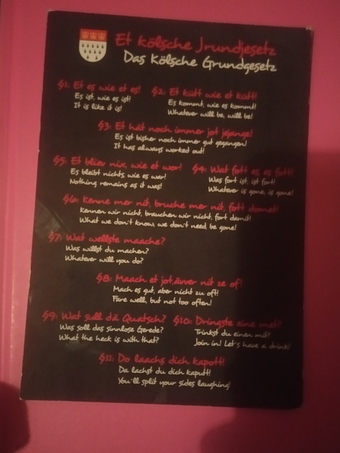 Et kölsche Jrundjesetz
Das Kölsche Grundgesetz
§1: Et es wie et es!
Es ist, wie es ist!
It is like it is!
§2: Et kütt wie et kütt!
Es kommt, wie es kommt!
Whatever will be, will be!
§3: Et hät noch immer jot jejange!
Es ist bisher noch immer gut gegangen!
It has always worked out!
§5: Et bliev nix, wie et wor!
Es bleibt nichts, wie es war!
Nothing remains as it was!
§4: Wat fott es es fott!
Was fort ist, ist fort!
Whatever is gone, is gone!
§6: Kenne mer nit, bruche mer nit, fott domet!
Kennen wir nicht, brauchen wir nicht, fort damit!
What we don't know, we don't need, be gone!
§7: Wat wellste maache?
Was willst du machen?
Whatever will you do?
§8: Maach et jot, ävver nit ze of!
Mach es gut, aber nicht zu oft!
Fare well, but not too often!
§9: Wat soll dä Quatsch?
Was soll das sinnlose Gerede?
What the heck is with that?
§10: Dringste eine met?
Trinkst du einen mit?
Join in! Let's have a drink!
§11: Do laachs dich kapott!
Da lachst du dich kaputt!
You'll split your sides laughing!